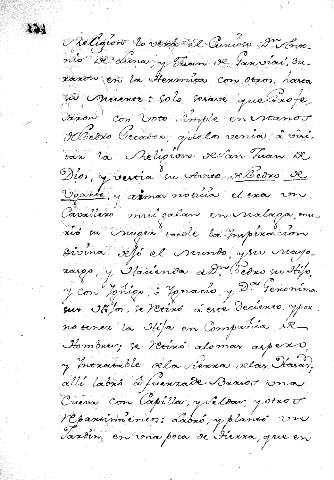 Religioso lo verá el Curioso Dn. Anto-
nio de Luna, y Juan de Garviai, du-
raron en la Hermita con otros, hasta
la Muerte: solo se save que Profe-
saron con Voto simple en manos
de Pedro Pecador, que los venia à visi-
tar la Religion de San Juan de
Dios, y vestia su Avito. de Pedro de
Ugarte, y ai ma noticia el era un
Cavallero mui galan en Malaga, mu-
rió su Muger tocole la Inspiracion
Divina dejó el Mundo, y su Mayo-
rasgo, y Hacienda a Dn. Pedro su Hijo,
y con Iñigo, ò Ignacio, y Da. Geronima
sus Hijos, se retiró a este Decierto, y por
no tener la Hija en Compañia de
Hombres; se retiró a lo mas aspero
y Intratable de la Sierra de las
alli labró à fuerza de Brasos una
Cueva con Capilla, y Seldas, y otros
Repartimientos: labró, y plantó un
Jardin, en una poca de tierra, que en